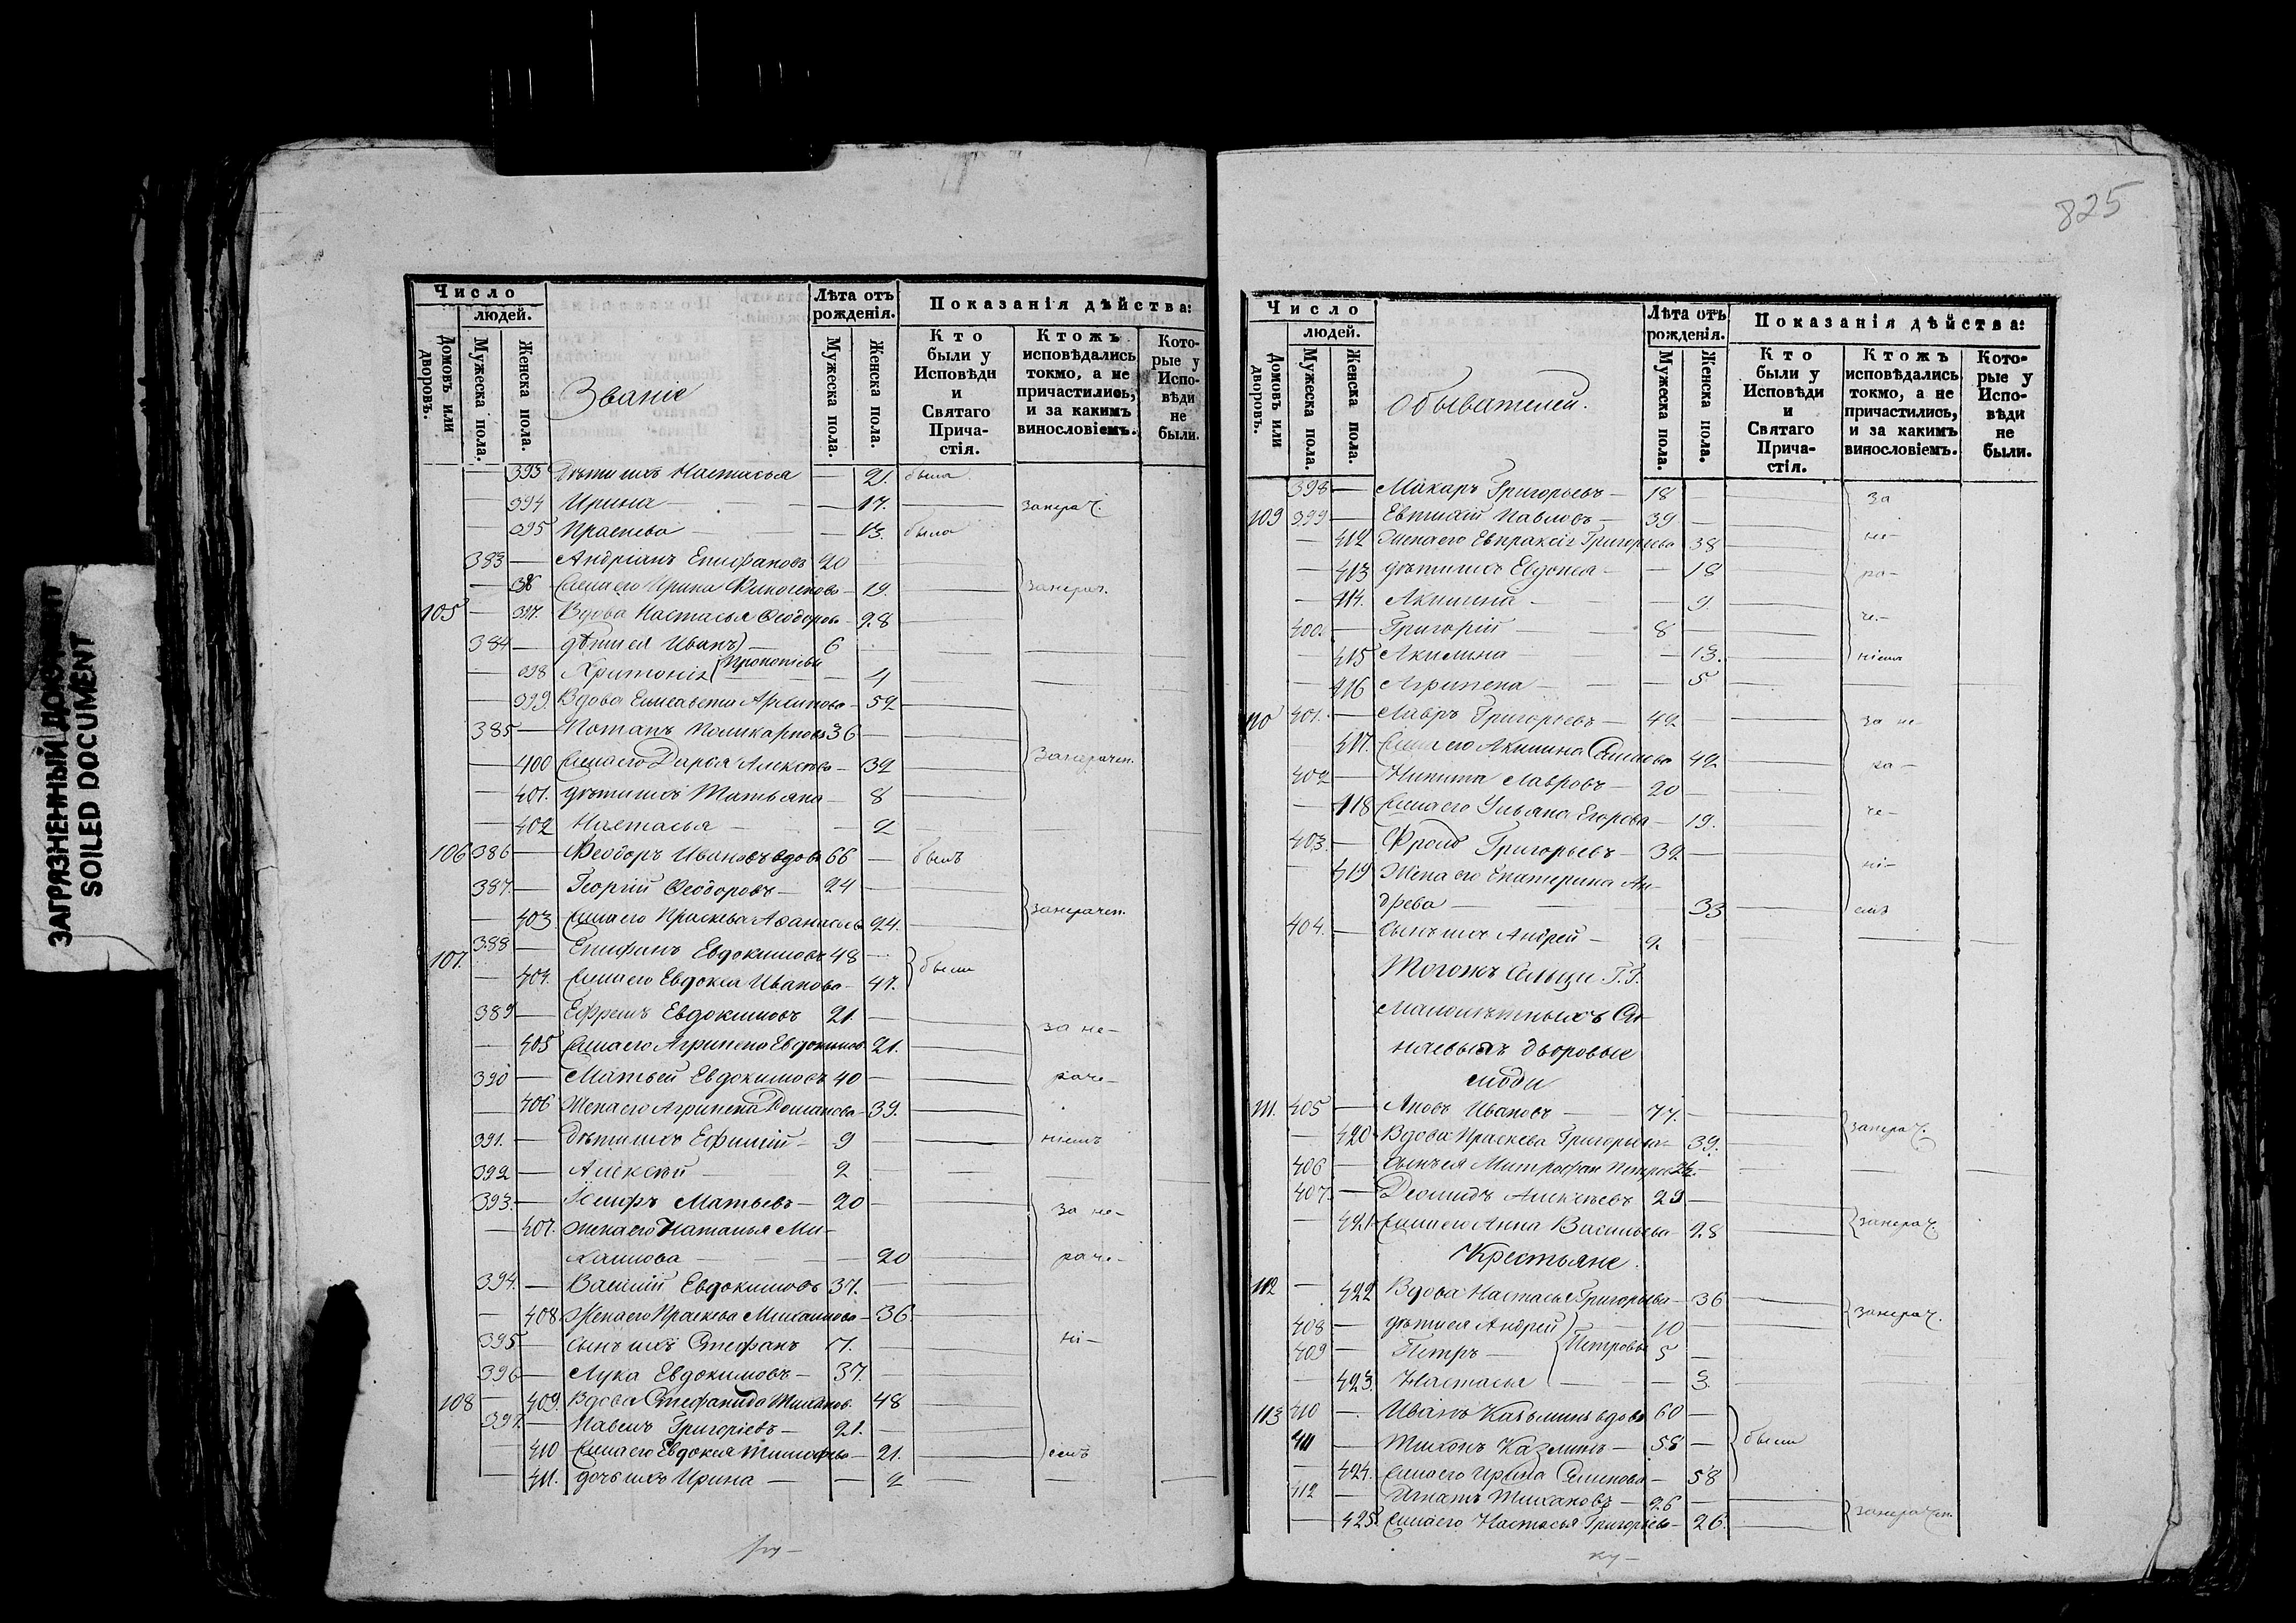 825
ЗАГРЯЗНЕННЫЙ ДОКУМЕНТ
SOILED DOCUMENT
Число
людей.
Домовъ или дворовъ.
Мужеска пола.
Женска пола.
Званіе
Лѣта отъ рожденія.
Мужеска пола.
Женска пола.
Показанія дѣйства:
Кто были у Исповѣди и Святаго Прича-стія.
Ктожъ исповѣдались токмо, а не причастились, и за какимъ винословіемъ.
Кото-рые у Испо-вѣди не были.
393 Дѣти ихъ Настасья — 21. была
394 Ирина — 17. занерач.
395 Праскева — 13. была
383 — Андріанъ Епифановъ 20
396 Жена его Ирина — 19. занерач.
105 — 397. Вдова Настасья Феодоров — 28
384 — дѣти ея Иванъ — 6
398 Прокопіевы — 4
399 Вдова Елисавета — 52
385 — Потапъ Поликарповъ 36 —
400 Жена его Дарья Алексѣева — 32 занерачен.
401. дѣти ихъ Татьяна — 8
402 Настасья — 2
106 386 — Феодоръ Ивановъ вдовъ 66 — былъ
387. — Георгій Феодоровъ — 24 —
403. Жена его Праскева Афанасьева 24. занерачен.
107. 388 — Епифанъ Евдокимовъ 48 —
404. Жена его Евдокея Иванова — 47. были
389 — Ефремъ Евдокимовъ 21. —
405 Жена его Агрипена Евдокимов. 21. за не-
390 — Матвей Евдокимовъ 40 — раче-
406 Жена его Агрипена Романова — 39.
391. — Дѣти ихъ Ефимій — 9 — ніемъ
392 — Алексѣй — 2
393. — Іосифъ Матвѣевъ — 20 — за не-
407. жена его Наталья Ми-
хайлова — 20 раче-
394. — Василій Евдокимовъ 37. —
408. Жена его Праскева Михайлова — 36
395 — сынъ ихъ Стефанъ 7. — ні-
396 — Лука Евдокимовъ — 37.
108 — 409. Вдова Стефанида Тиханов. 48
397. — Павелъ Григоріевъ — 21. —
410 Жена его Евдокея Тимофѣева — 21. емъ
411. дочь ихъ Ирина — 2
Число
людей.
Домовъ или дворовъ.
Мужеска пола.
Женска пола.
Обывателей.
Лѣта отъ рожденія.
Мужеска пола.
Женска пола.
Показанія дѣйства:
Кто были у Исповѣди и Святаго Прича-стія.
Ктожъ исповѣдались токмо, а не причастились, и за какимъ винословіемъ.
Кото-рые у Испо-вѣди не были.
398 — Макаръ Григорьевъ — 18 — за
109 399 — Евтихій Павловъ — 39 —
412 Жена его Евпраксія Григорьева 38 не-
413 дѣти ихъ Евдокея — 18 ра-
414. Акилина — 9.
400. — Григорій — 8 — че-
415 Акилина — 13. ніемъ
416 Агрипена — 5
110 401. — Лавръ Григорьевъ — 42 за не-
417. Жена его Акилина 42
402 — Никита Лавровъ — 20 — ра-
418 Жена его Ульяна Егорова — 19. че-
403. — Фролъ Григорьевъ — 32 —
419 Жена его Екатерина Ан-
древа — 33 ні-
емъ
404. — сынъ ихъ Андрей — 2
Тогожъ Сельца Г.Г.
малолѣтныхъ
дворовые
люди
111. 405 — Яковъ Ивановъ — 77. —
420 Вдова Праскева Григорьева — 39. занерач.
406 — сынъ ея Митрофан Петров
407. — Деомидъ Алексѣевъ 29 —
421 Жена его Анна Васильева — 28 занерач.
Крестьяне.
112 — 422 Вдова Настасья Григорьева — 36
408 — дѣти ея Андрей — 10 — занерач.
409 — Петръ — Петровы 5 —
423. Настасья — 3.
113 410 — Иванъ Казьминъ вдовъ 60 —
411 — Тихонъ Казминъ — 58 — были
424. Жена его Ирина Семенова — 58
412 — Игнатъ Тихановъ — 26 —
425. Жена его Настасья Григорьева — 26. занерачен.